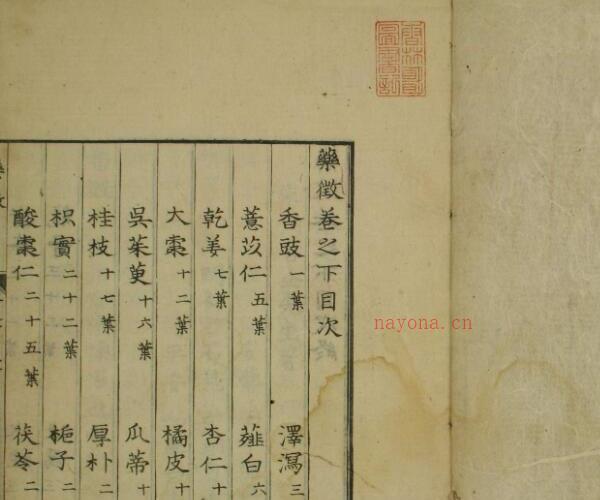 藥徴卷之下目次
香豉一葉
澤瀉三
薏苡仁五葉
薤白六
乾姜七葉
杏仁十
大棗十二葉
橘皮十
吳茱萸十六葉
瓜蒂十
桂枝十七葉
厚朴二
枳實二十二葉
梔子二
酸棗仁二十五葉
茯苓二
nayona.cn